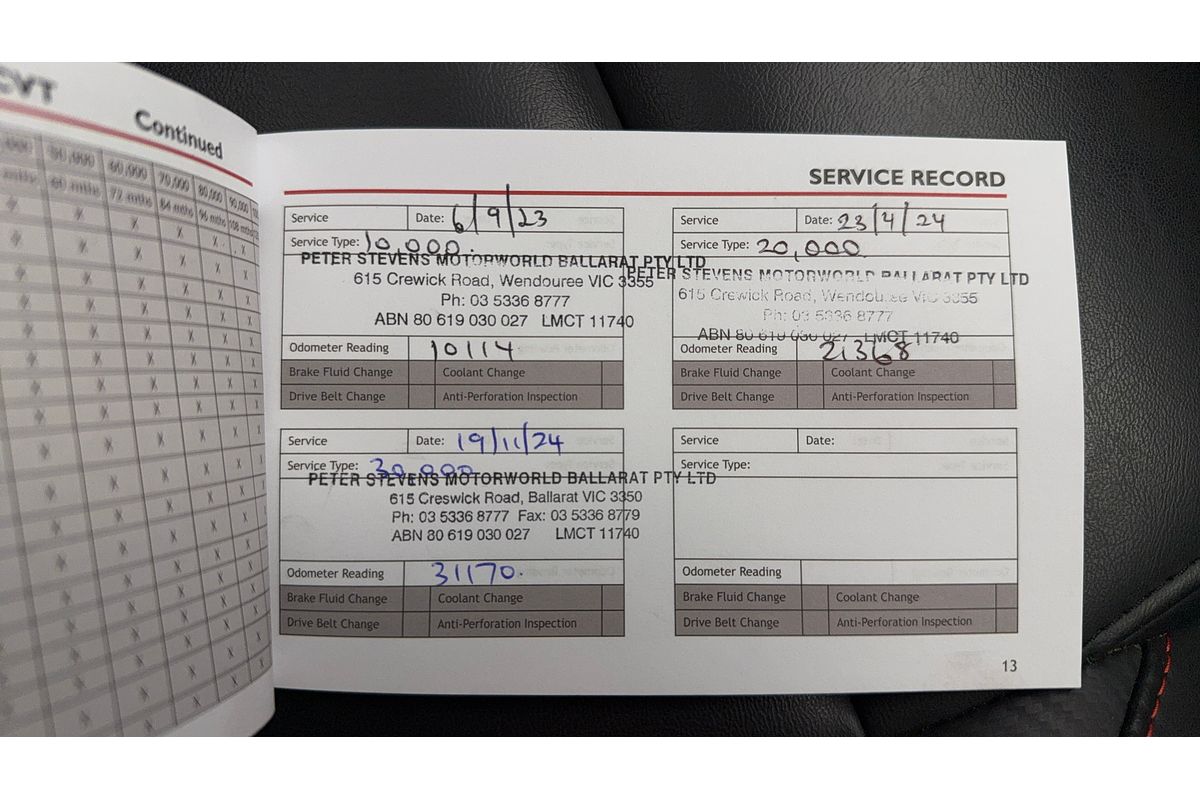 CVT
Continued
60,000 70,000 80,000 90,000
60 mths 72 mths 84 mths 96 mths 108 mths
SERVICE RECORD
Service Date: 6/9/23
Service Type: 10,000.
PETER STEVENS MOTORWORLD BALLARAT PTY LTD
615 Crewick Road, Wendouree VIC 3355
Ph: 03 5336 8777
ABN 80 619 030 027 LMCT 11740
Odometer Reading 10114
Brake Fluid Change Coolant Change
Drive Belt Change Anti-Perforation Inspection
Service Date: 23/4/24
Service Type: 20,000.
PETER STEVENS MOTORWORLD BALLARAT PTY LTD
615 Crewick Road, Wendouree VIC 3355
Ph: 03 5336 8777
ABN 80 619 030 027 LMCT 11740
Odometer Reading 21368
Brake Fluid Change Coolant Change
Drive Belt Change Anti-Perforation Inspection
Service Date: 19/11/24
Service Type: 30,000
PETER STEVENS MOTORWORLD BALLARAT PTY LTD
615 Creswick Road, Ballarat VIC 3350
Ph: 03 5336 8777 Fax: 03 5336 8779
ABN 80 619 030 027 LMCT 11740
Odometer Reading 31170.
Brake Fluid Change Coolant Change
Drive Belt Change Anti-Perforation Inspection
Service Date:
Service Type:
Odometer Reading
Brake Fluid Change Coolant Change
Drive Belt Change Anti-Perforation Inspection
13